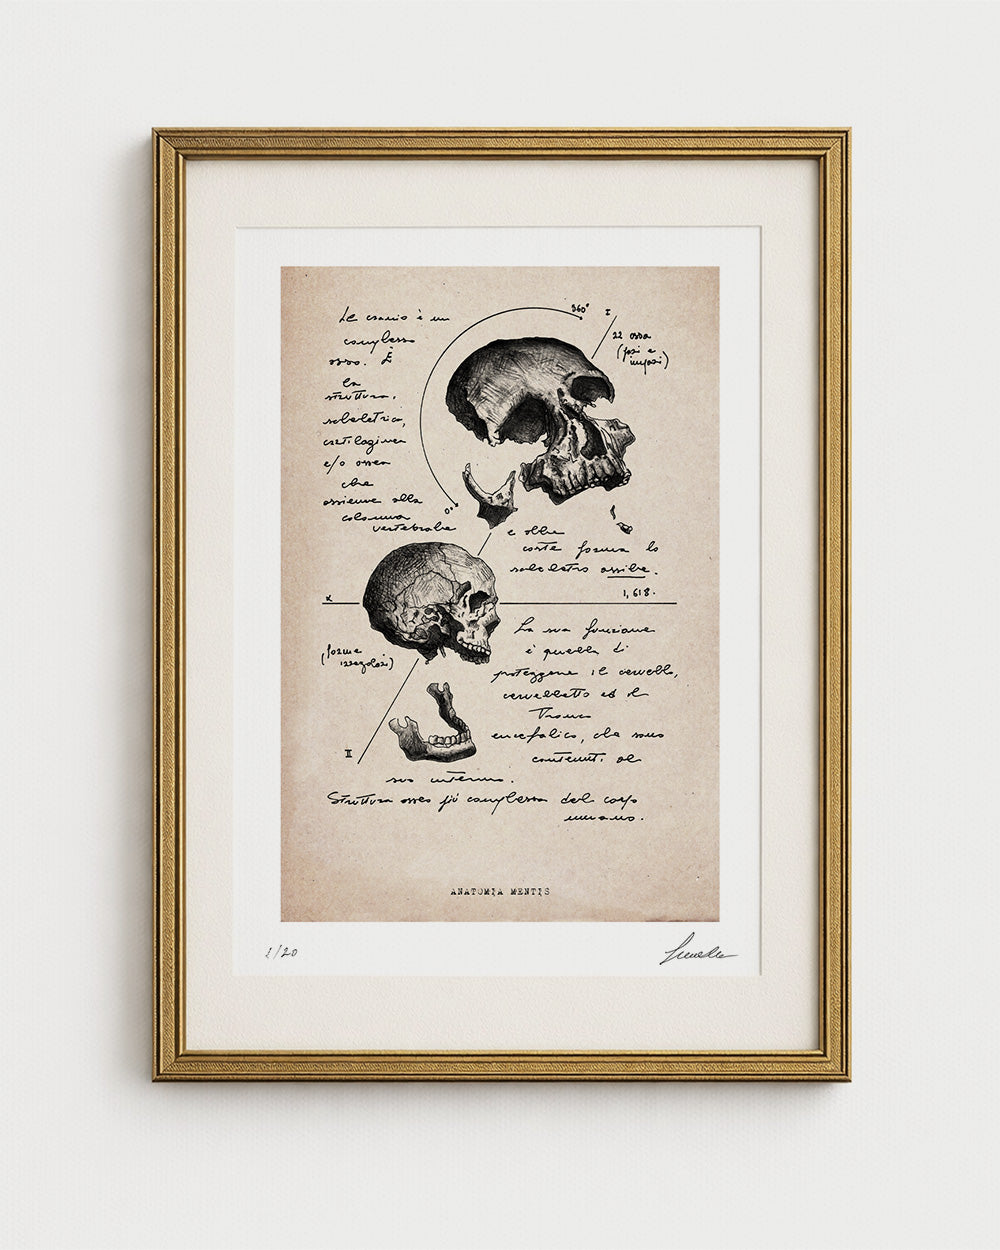 360°
I
Il cranio è un
complesso
osseo. È
la
struttura,
scheletrica,
cartilaginea
e/o ossea
che
assieme alla
colonna
vertebrale
22 ossa
(pari e
impari)
0°
e alle
coste forma lo
scheletro assile.
1,618.
x
(forme
irregolari)
La sua funzione
è quella di
proteggere il cervello,
cervelletto ed il
Tronco
encefalico, che sono
contenuti al
suo interno.
II
Struttura ossea più complessa del corpo
umano.
ANATOMIA MENTIS
1/20